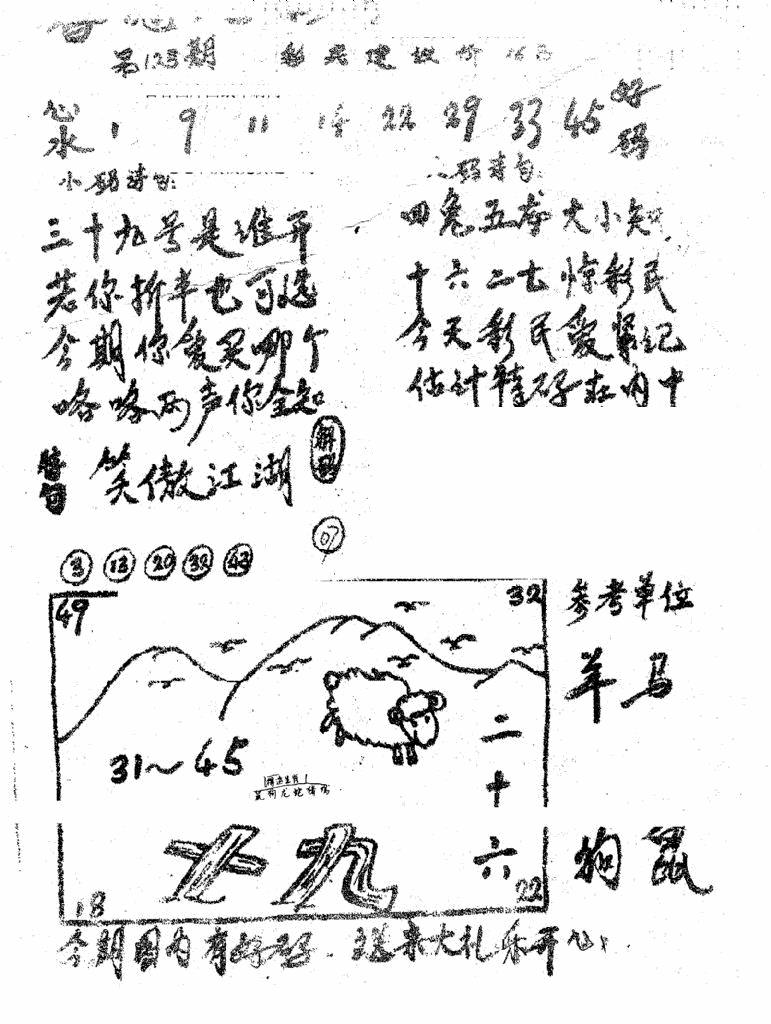 第123期 彩民建议价
心水 1 9 11 22 29 33 45 好码
小码诗句:
码诗句:
三十九号是谁开
若你折半也可选
今期你爱买哪个
咯咯两声你全知
四兔五龙大小知
十六二七惊彩民
今天彩民爱紧记
估计特码在内中
特句 笑傲江湖 解码
07
3 13 20 32 43
49 32
31~45
二十六
七九
18 22
参考单位
羊马
狗鼠
今期图内有好码.送来大礼乐开心